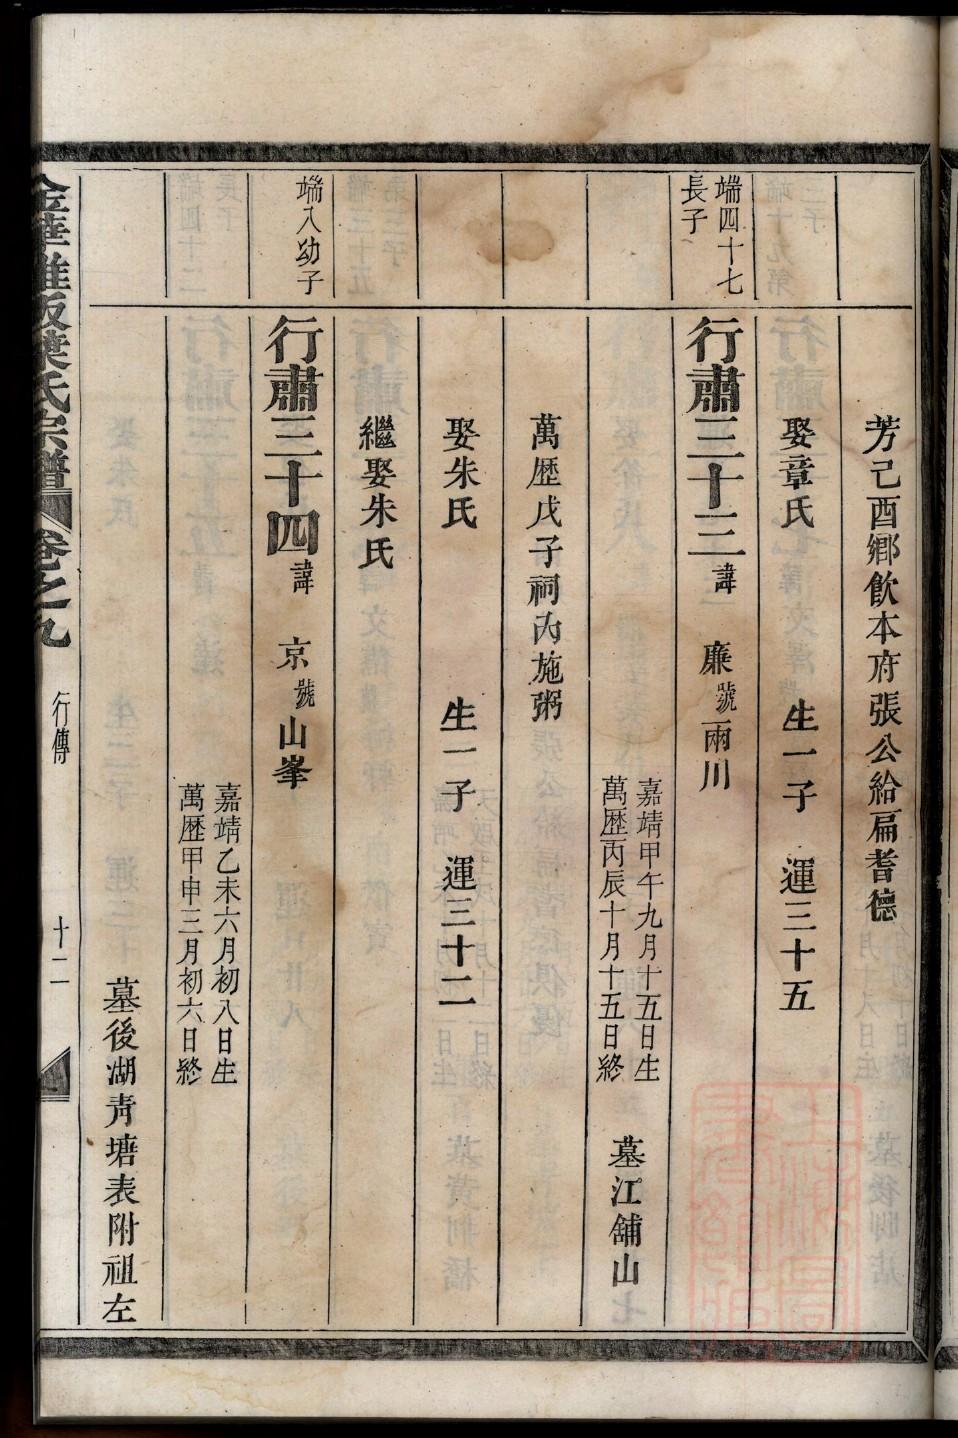 芳己酉鄉飲本府張公給扁耆德
娶章氏 生一子 運三十五
端四十七長子
行肅三十三諱 廉號兩川
嘉靖甲午九月十五日生
萬歴丙辰十月十五日終
墓江舖山
萬歴戊子祠內施粥
娶朱氏 生一子 運三十二
繼娶朱氏
端入幼子
行肅三十四諱 京號山峯
嘉靖乙未六月初八日生
萬歴甲申三月初六日終
墓後湖青塘表附祖左
葉氏宗譜 卷之九 行傳 十二